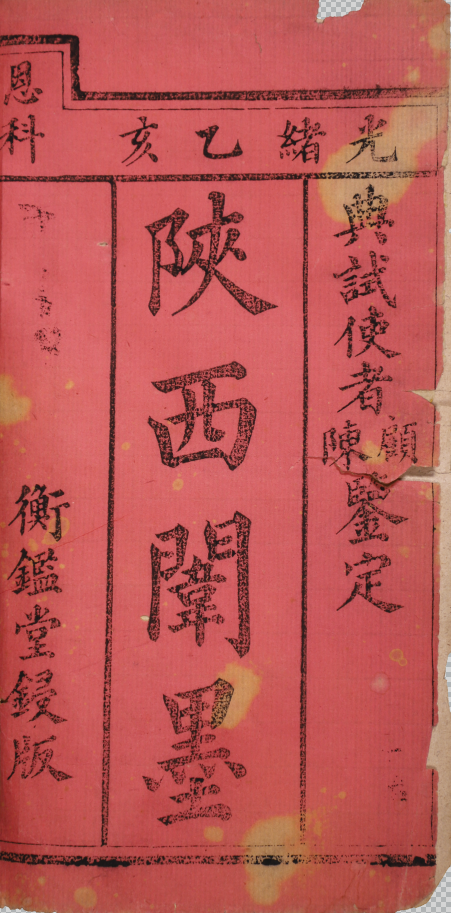 光緒乙亥
恩科
典試使者顧陳鑒定
陝西闈墨
衡鑑堂鋟版